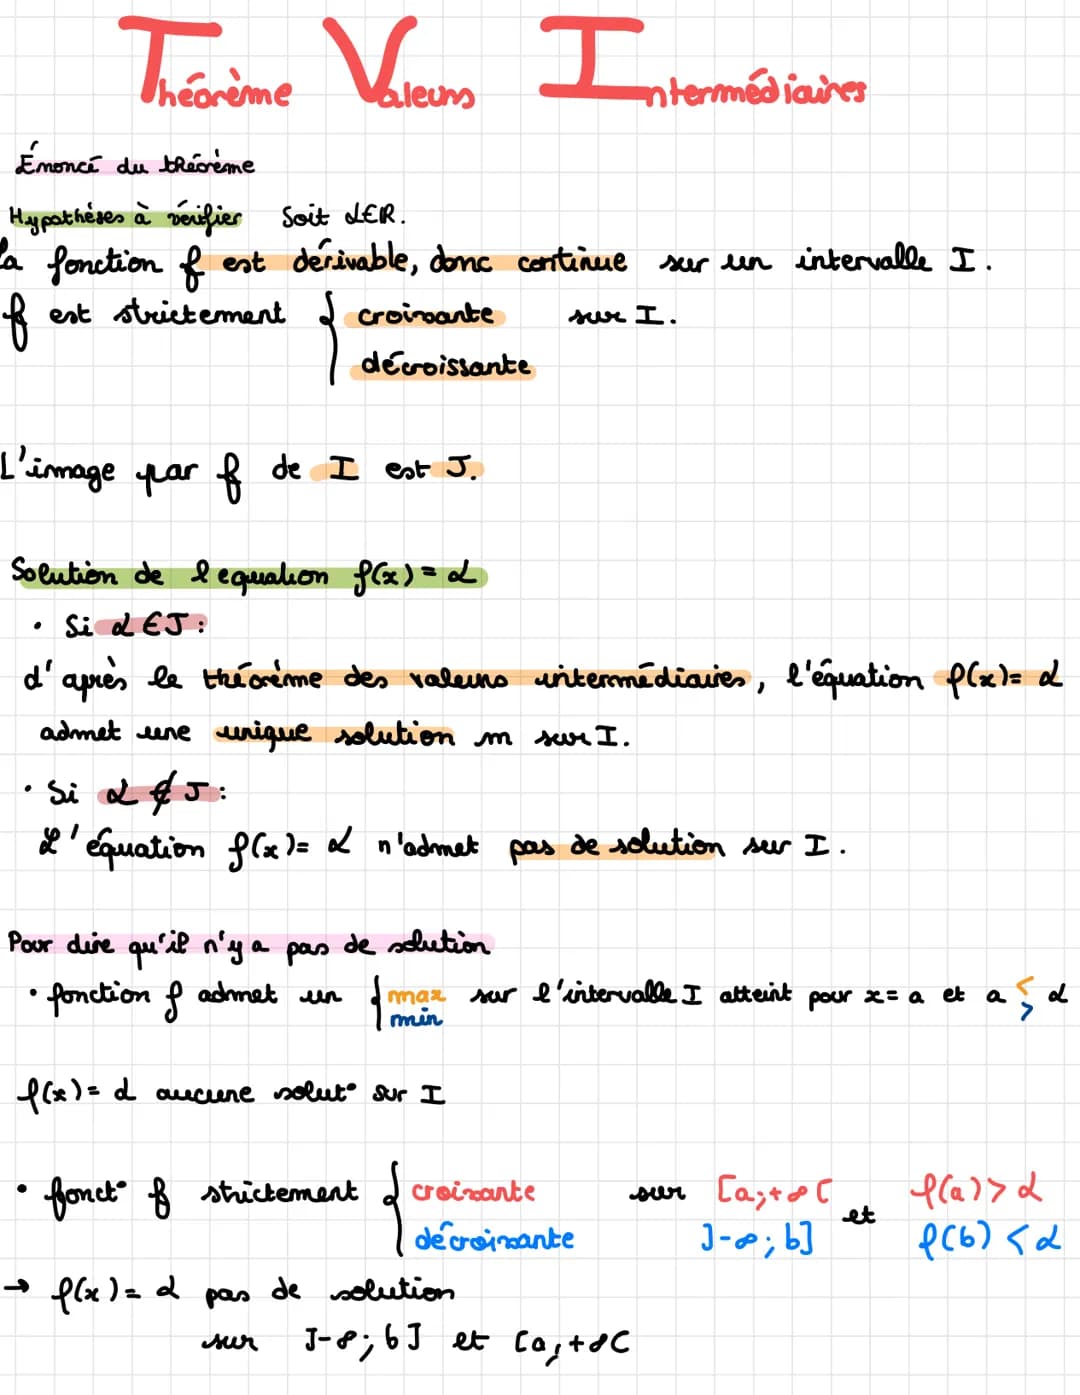 Théorème Valeurs Intermédiaires
Énoncé du théorème
Hypothéses à vérifier Soit α∈R.
La fonction f est dérivable, donc continue sur un intervalle I.
f est strictement { croissante sur I.
décroissante
L'image par f de I est J.
Solution de l'equation f(x)=α
• Si α∈J :
d'après le théorème des valeurs intermédiaires, l'équation f(x)=α
admet une unique solution m sur I.
• Si α∉J :
L'équation f(x)=α n'admet pas de solution sur I.
Pour dire qu'il n'y a pas de solution
• fonction f admet un { max sur l'intervalle I atteint pour x=a et a < α
min >
f(x)=α aucune solut° sur I
• fonct° f strictement { croissante sur [a;+∞[ et f(a)>α
décroissante ]-∞;b] f(b)<α
→ f(x)=α pas de solution
sur ]-∞;b] et [a;+∞[